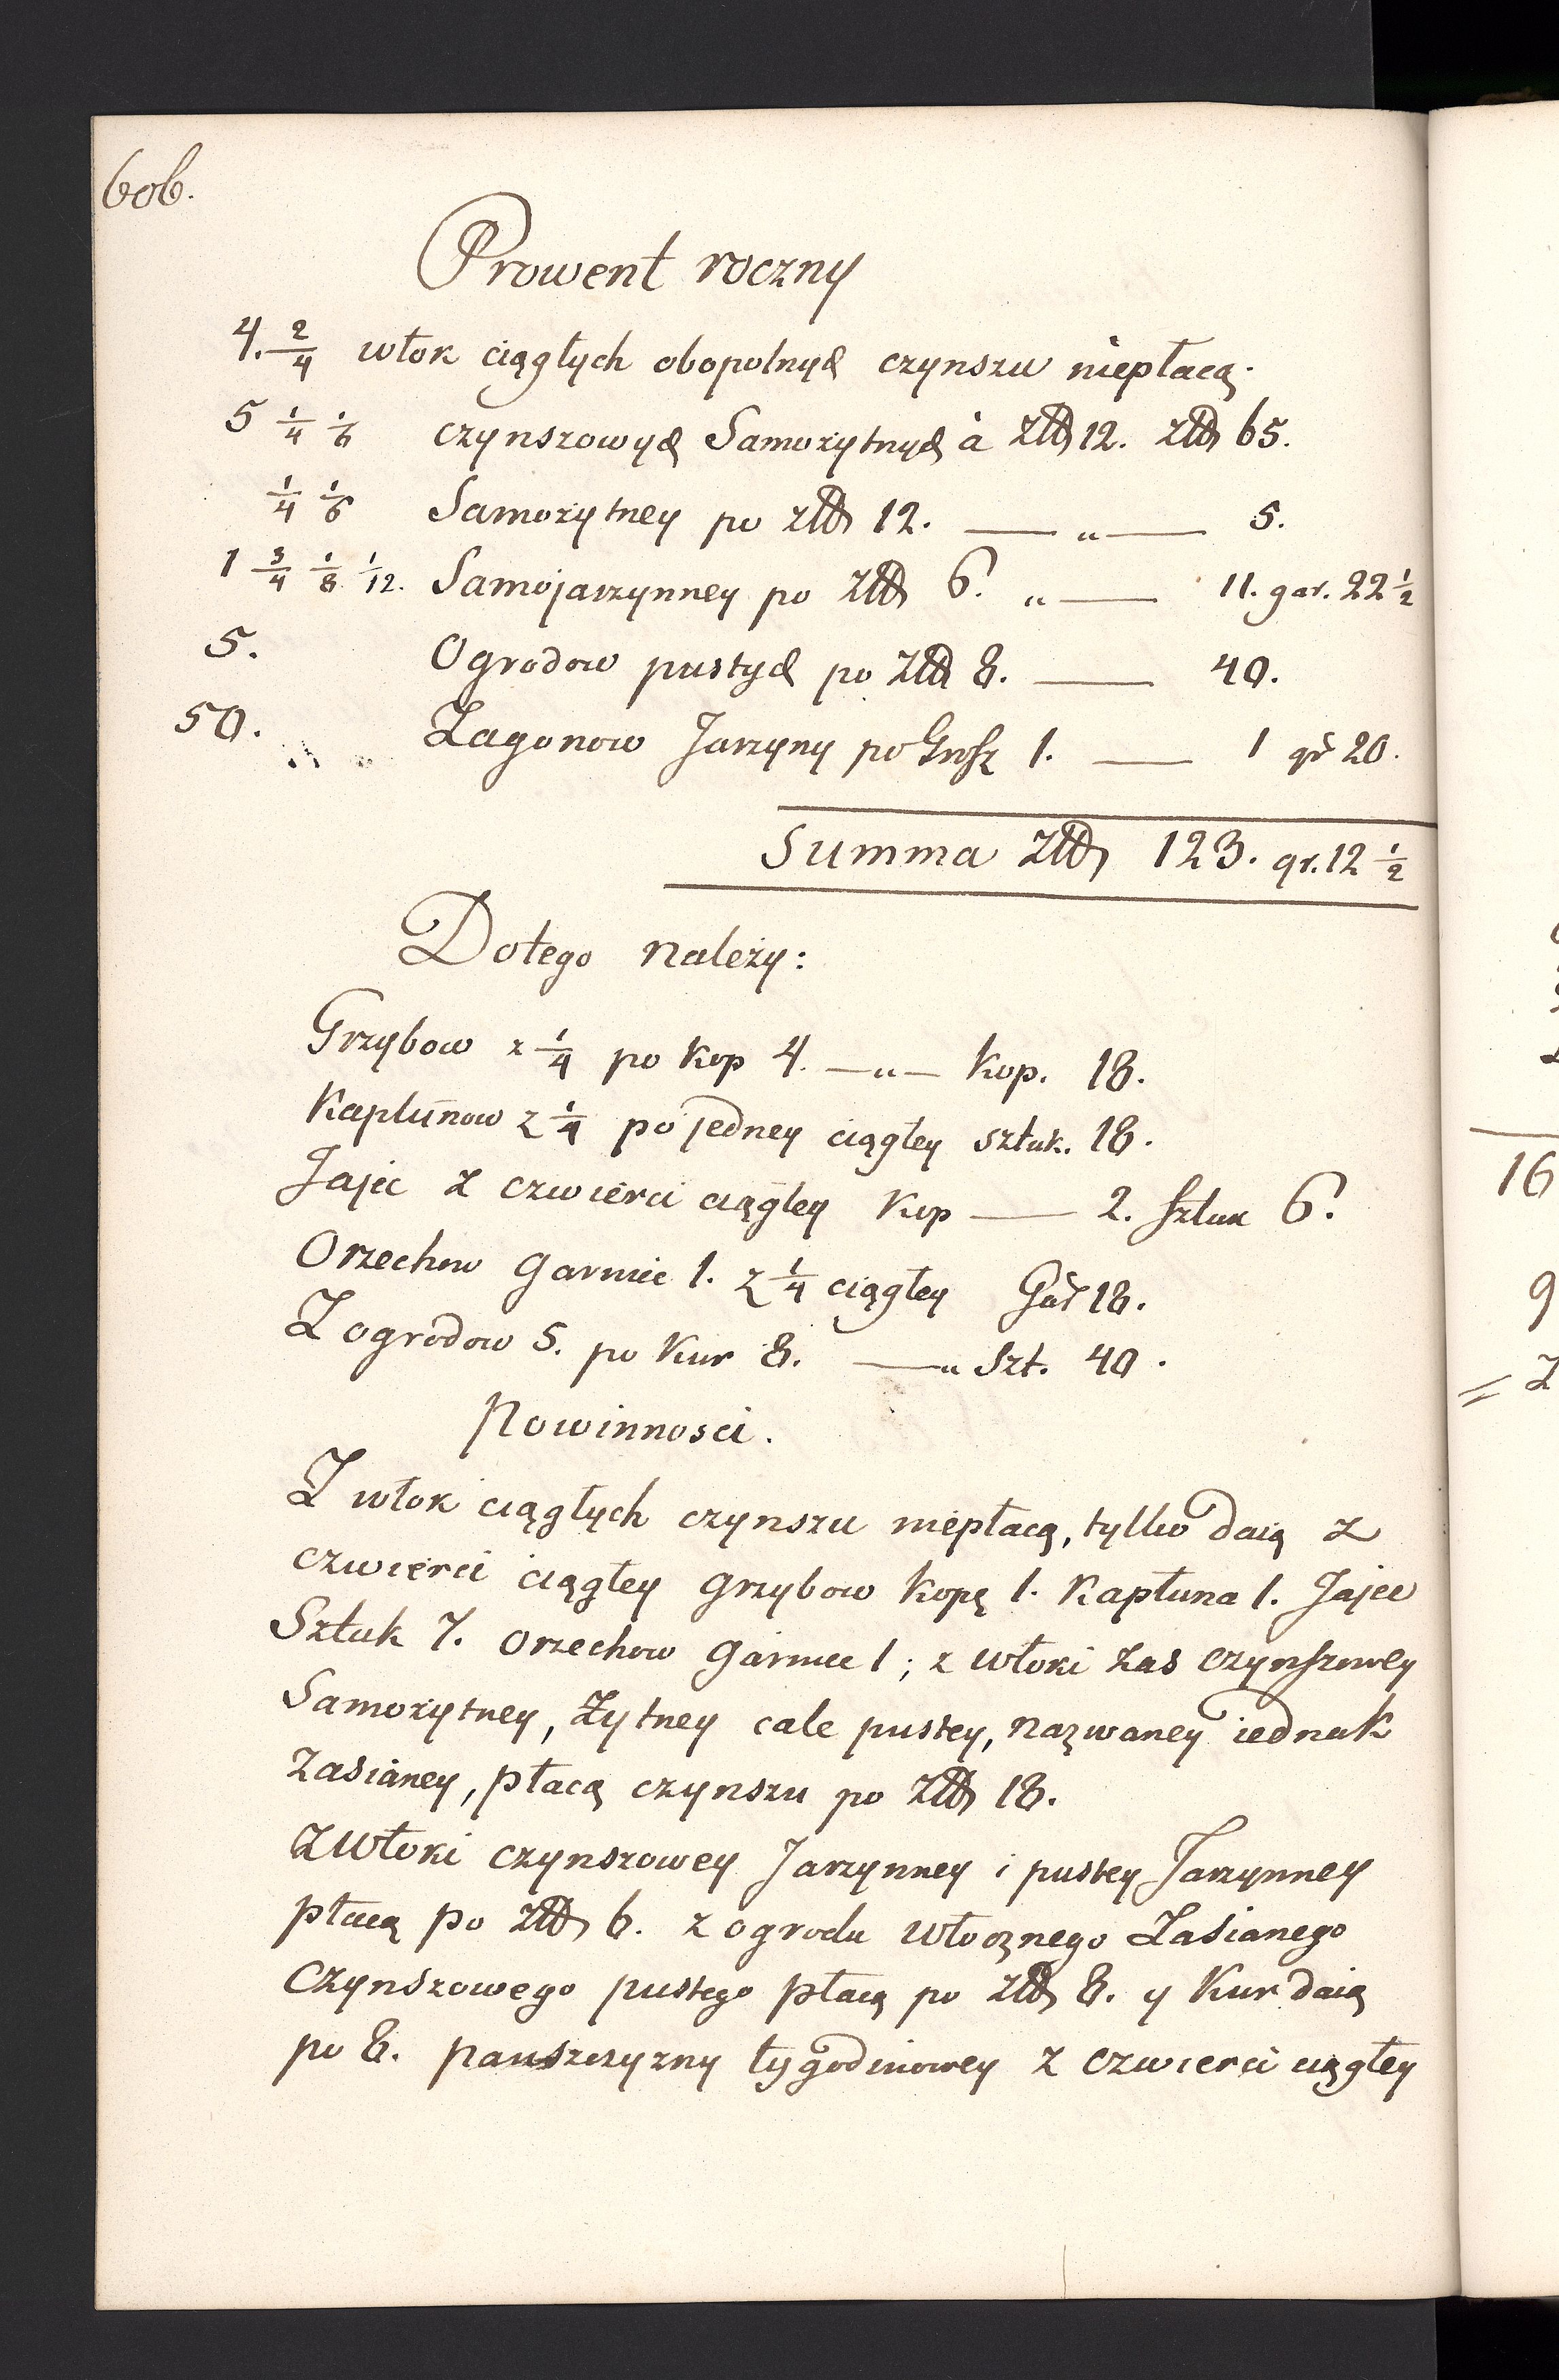 606.
Prowent roczny
4. 2/4 włok ciągłych obopolnych czynszu niepłacą.
5 1/4 1/6 czynszowych Samożytnych à Złł 12. Złł 65.
1/4 1/6 Samożytney po złł 12. — „ — 5.
1 3/4 1/8 1/12. Samojarzynney po Złł 6. „ — 11. gar. 22 1/2
5. Ogrodow pustych po Złł 8. — 40.
50. Zagonow Jarzyny po Grosz 1. — 1 gr 20.
Summa Złł 123. gr. 12 1/2
Dotego należy:
Grzybow z 1/4 po kop 4. — „ — kop. 18.
Kapłunow z 1/4 po jedney ciągłey sztuk. 18.
Jajec z czwierci ciągłey kop — 2. sztuk 6.
Orzechow garniec 1. z 1/4 ciągłey Gar 18.
Z ogrodow 5. po kur 8. — „ Szt. 40.
Powinnosci.
Z włok ciągłych czynszu niepłacą, tylko daią z
czwierci ciągłey grzybow kopę 1. Kapłuna 1. Jajec
Sztuk 7. orzechow garniec 1; z włoki zas czynszowey
Samożytney, Żytney cale pustey, nazwaney iednak
zasianey, płacą czynszu po Złł 18.
z Włoki czynszowey Jarzynney i pustey Jarzynney
płacą po Złł 6. z ogrodu włocznego Zasianego
Czynszowego pustego płacą po złł 8. y Kur daią
po 8. panszczyzny tygodniowey z czwierci ciągłey
16
9
= Z